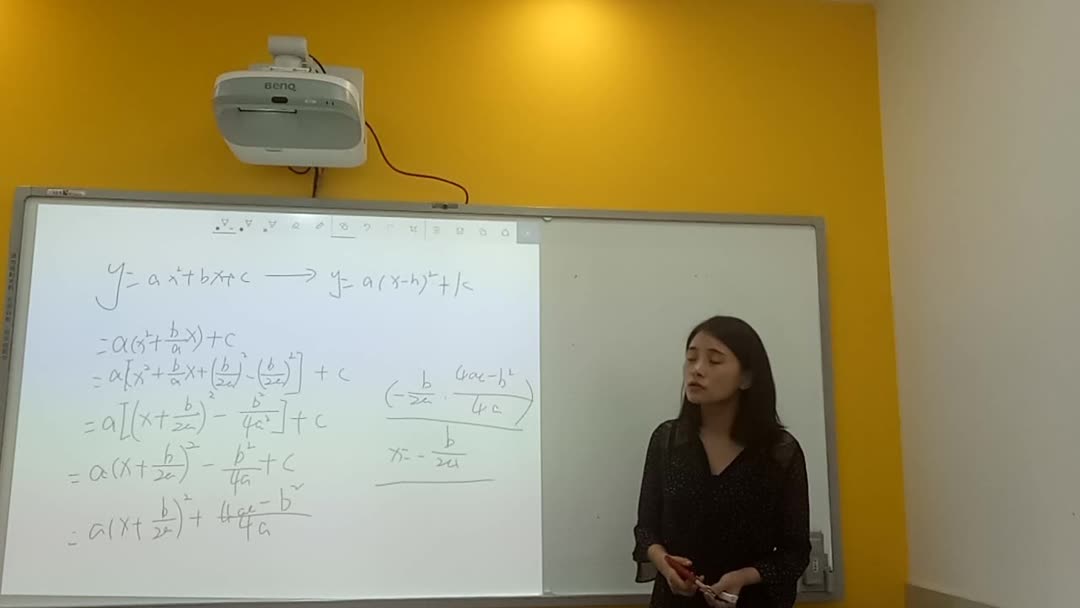 BenQ
y=ax²+bx+c ⟶ y=a(x-h)²+k
=a(x²+b/a x)+c
=a[x²+b/a x+(b/2a)²-(b/2a)²]+c
=a[(x+b/2a)²-b²/4a²]+c
=a(x+b/2a)²-b²/4a+c
=a(x+b/2a)²+4ac-b²/4a
(-b/2a, 4ac-b²/4a)
x=-b/2a